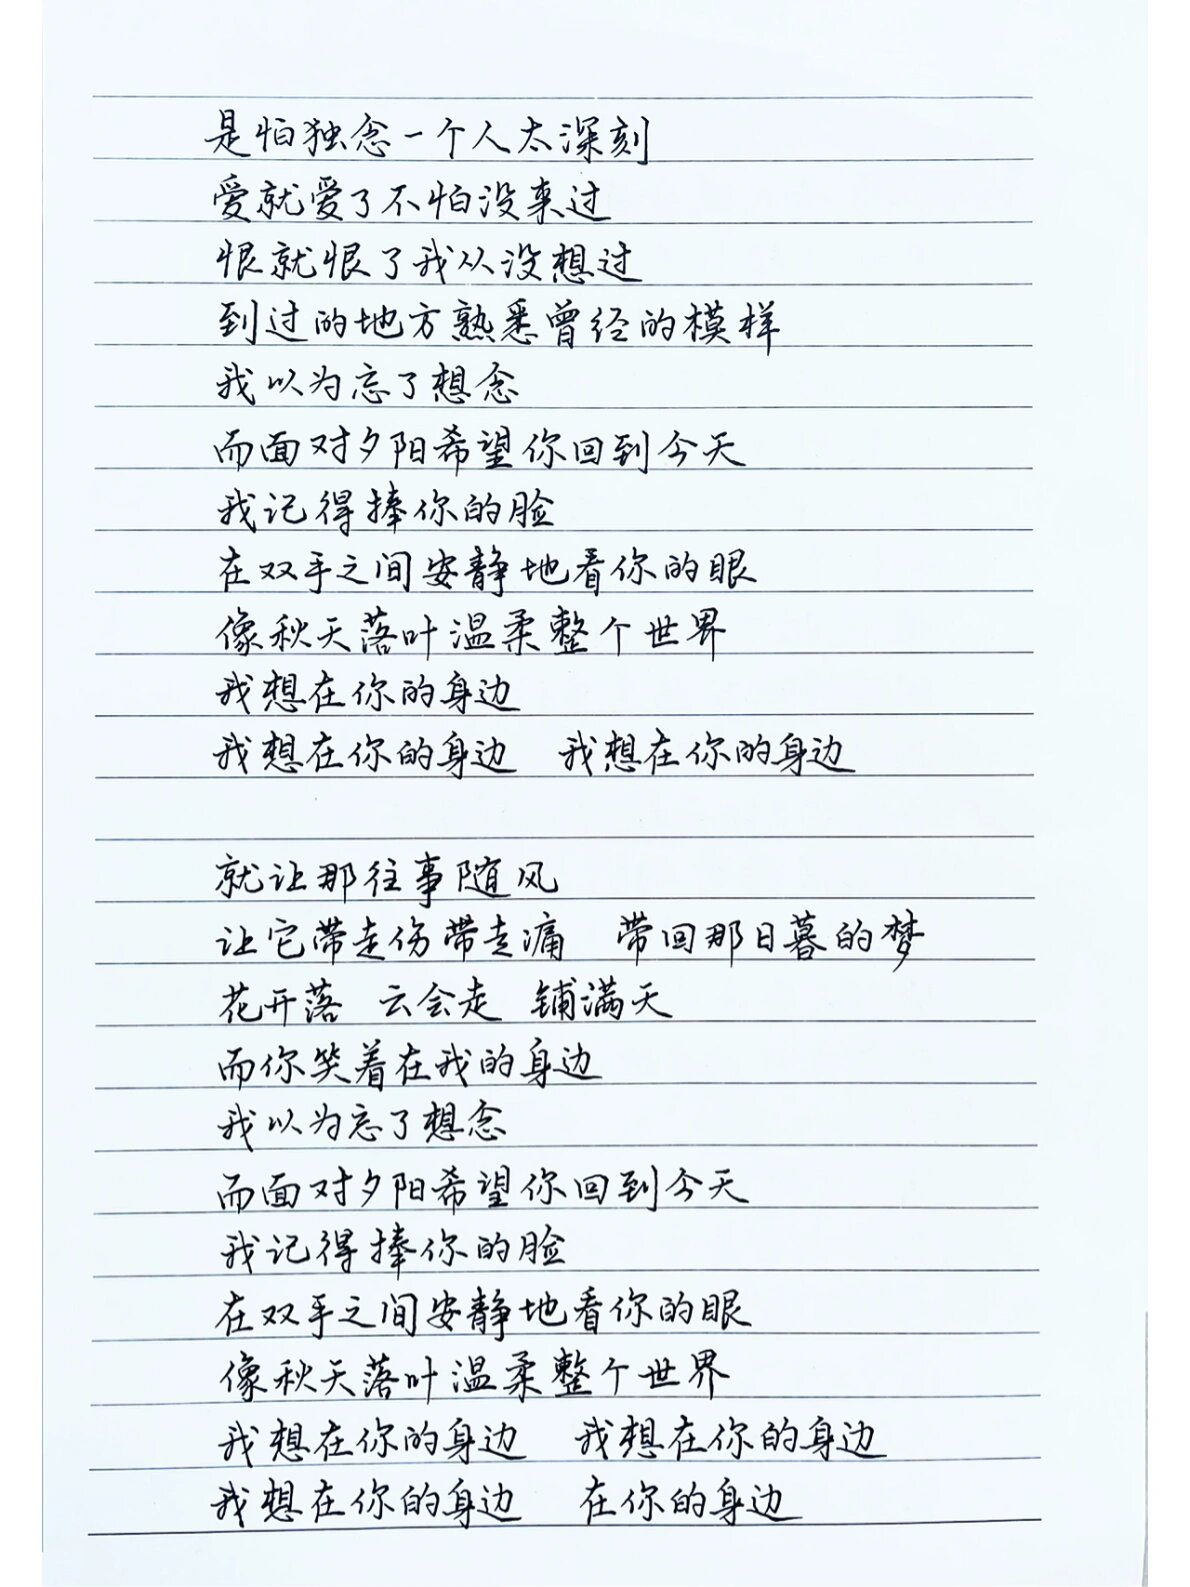 是怕独念一个人太深刻
爱就爱了不怕没来过
恨就恨了我从没想过
到过的地方熟悉曾经的模样
我以为忘了想念
而面对夕阳希望你回到今天
我记得捧你的脸
在双手之间安静地看你的眼
像秋天落叶温柔整个世界
我想在你的身边
我想在你的身边 我想在你的身边
就让那往事随风
让它带走伤带走痛 带回那日暮的梦
花开落 云会走 铺满天
而你笑着在我的身边
我以为忘了想念
而面对夕阳希望你回到今天
我记得捧你的脸
在双手之间安静地看你的眼
像秋天落叶温柔整个世界
我想在你的身边 我想在你的身边
我想在你的身边 在你的身边